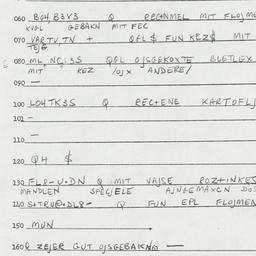 060 BO4 B3V3 Q RECHNMEL MIT FLOJME
KUGL GEBAKN MIT FEC
070 VARTV,TN + QFL $ FUN KEZ$ MIT
TEJG
080 ML,NC;3S QFL OJSGEKOXTE BLETLEX
MIT KEZ /OJX ANDERE/
090 —
100 LO4TK3S Q RECTENE KARTOFLJ
102 —
110 —
120 QH $
130 FL8-U·DN Q MIT VAJSE ROZ+INKES
MANDLEN SPECJELE AJNGEMAXCN DOS
140 S+TRU@·DL8- Q FUN EPL FLOJMEN
150 MUN
160 Q ZEJER GUT OJSGEBAKN —